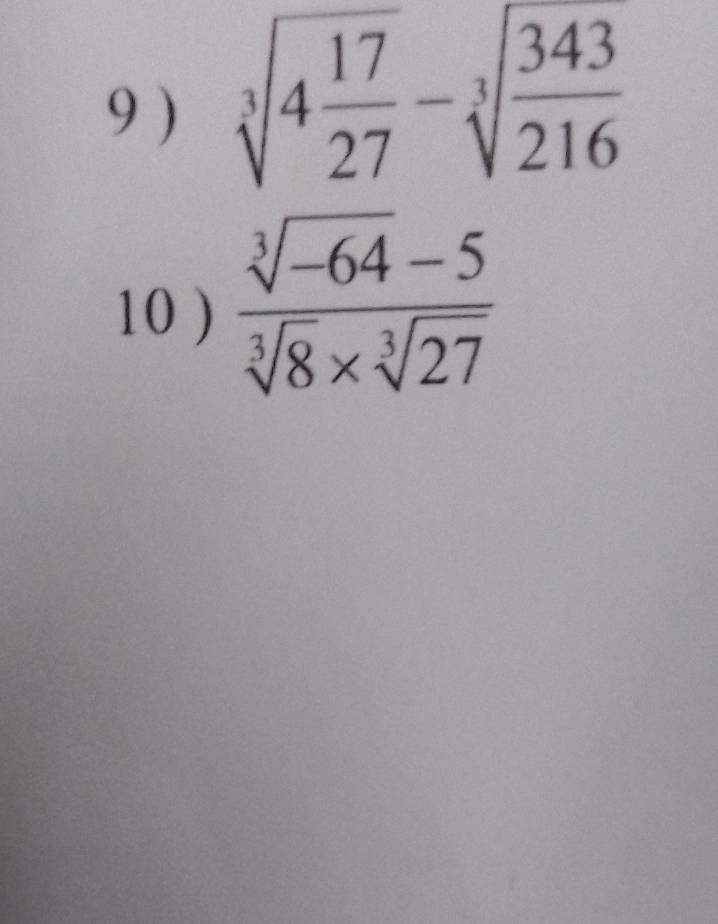 9 ) ∛(4 17/27) − ∛(343/216)
10 ) (∛(−64) − 5)/(∛8 × ∛27)